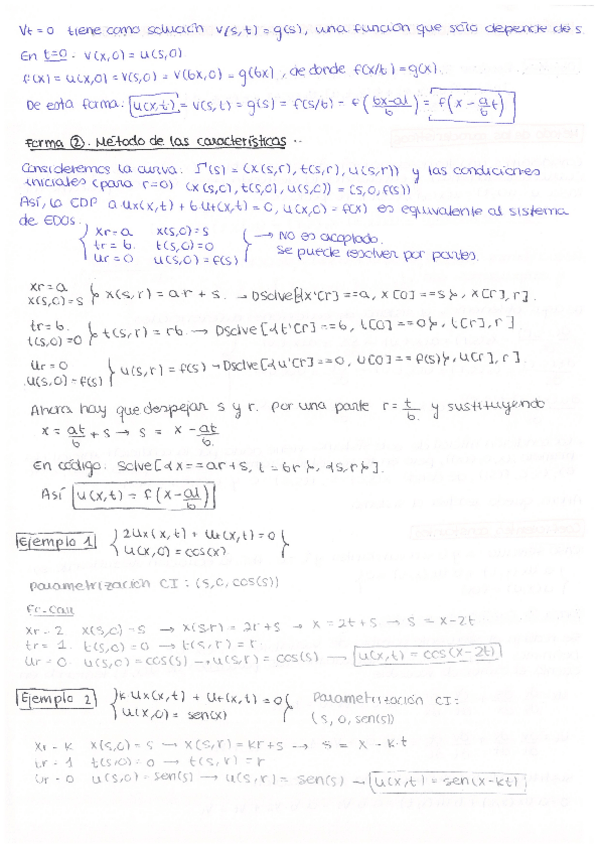 Vt = 0 tiene como solución v(s,t) = g(s), una función que sólo depende de s
En t=0. v(x,0) = u(s,0)
f(x) = u(x,0) = v(s,0) = v(bx,0) = g(bx), de donde f(x/b) = g(x).
De esta forma: u(x,t) = v(s,t) = g(s) = f(s/b) = f((bx-at)/b) = f(x - a/b t)
Forma ②. Método de las características..
Consideremos la curva. Γ(s) = (x(s,r), t(s,r), u(s,r)) y las condiciones
iniciales (para r=0) (x(s,0), t(s,0), u(s,0)) = (s,0,f(s))
Así, la EDP a ux(x,t) + b ut(x,t) = 0, u(x,0) = f(x) es equivalente al sistema
de EDOs.
{ xr = a x(s,0) = s
tr = b. t(s,0) = 0
ur = 0 u(s,0) = f(s) } → NO es acoplado.
se puede resolver por partes.
xr = a
x(s,0) = s } x(s,r) = ar + s. → DSolve[{x'[r] == a, x[0] == s}, x[r], r].
tr = b.
t(s,0) = 0 } t(s,r) = rb. → DSolve[{t'[r] == b, t[0] == 0}, t[r], r]
ur = 0
u(s,0) = f(s) } u(s,r) = f(s) → DSolve[{u'[r] == 0, u[0] == f(s)}, u[r], r]
Ahora hay que despejar s y r. Por una parte r = t/b y sustituyendo
x = at/b + s → s = x - at/b.
En código. Solve[{x == ar + s, t = br}, {s,r}].
Así u(x,t) = f(x - at/b)
Ejemplo 1 { 2ux(x,t) + ut(x,t) = 0
u(x,0) = cos(x) }
Parametrización CI: (s, 0, cos(s))
xr = 2 x(s,0) = s → x(s,r) = 2r + s → x = 2t + s → s = x - 2t
tr = 1. t(s,0) = 0 → t(s,r) = r
ur = 0. u(s,0) = cos(s) → u(s,r) = cos(s) → u(x,t) = cos(x-2t)
Ejemplo 2 { k ux(x,t) + ut(x,t) = 0
u(x,0) = sen(x) } Parametrización CI:
(s, 0, sen(s))
xr = k x(s,0) = s → x(s,r) = kr + s → s = x - k·t
tr = 1 t(s,0) = 0 → t(s,r) = r
ur = 0 u(s,0) = sen(s) → u(s,r) = sen(s) → u(x,t) = sen(x-kt)